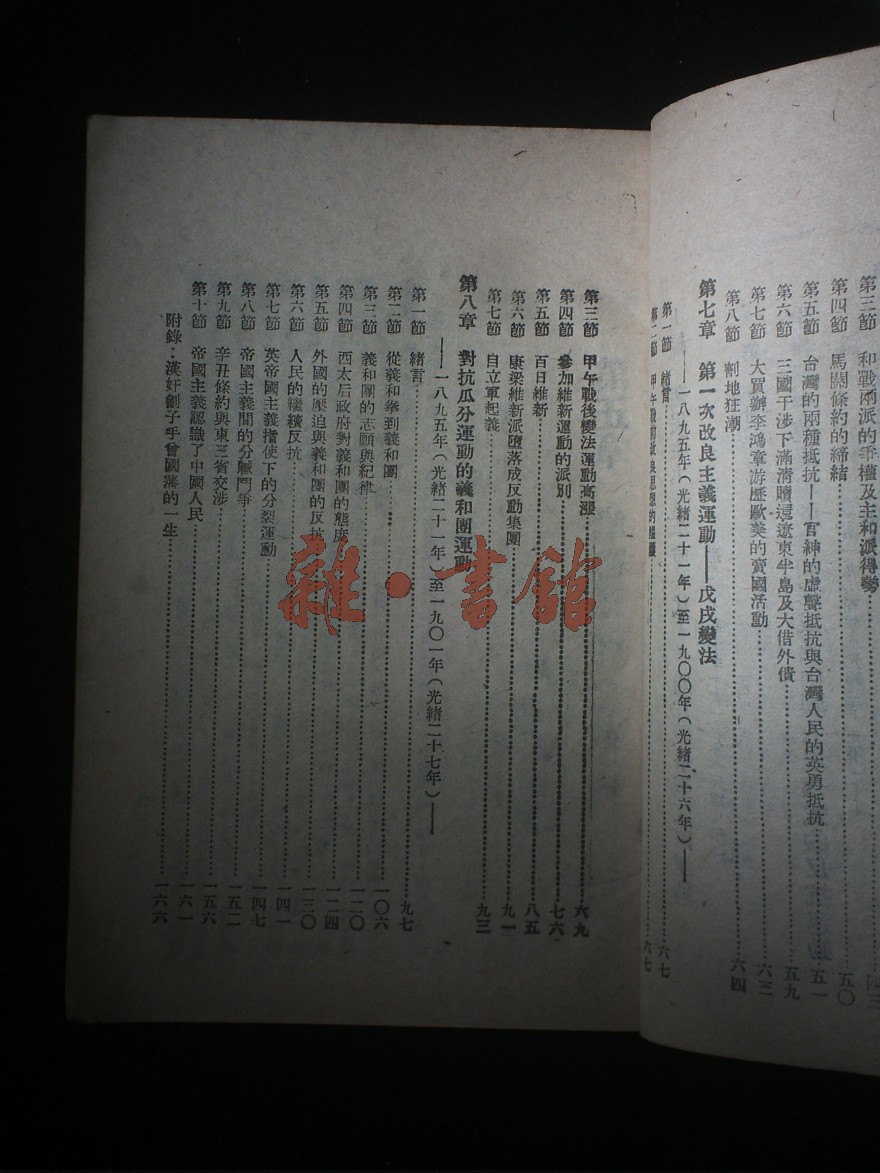 第三節 和戰兩派的爭權及主和派得勢
第四節 馬關條約的締結 五〇
第五節 台灣的兩種抵抗——官紳的虛聲抵抗與台灣人民的英勇抵抗 五一
第六節 三國干涉下滿清贖還遼東半島及大借外債 五九
第七節 大買辦李鴻章游歷歐美的賣國活動 六三
第八節 割地狂潮 六四
第七章 第一次改良主義運動——戊戌變法
——一八九五年(光緒二十一年)至一九〇〇年(光緒二十六年)——
第一節 緒言 六七
第二節 甲午戰前改良思想的 六七
第三節 甲午戰後變法運動高漲 六九
第四節 參加維新運動的派別 七六
第五節 百日維新 八五
第六節 康梁維新派墮落成反動集團 九一
第七節 自立軍起義 九三
第八章 對抗瓜分運動的義和團運動
——一八九五年(光緒二十一年)至一九〇一年(光緒二十七年)——
第一節 緒言 九七
第二節 從義和拳到義和團 一〇六
第三節 義和團的志願與紀律 一二〇
第四節 西太后政府對義和團的態度 一二四
第五節 外國的壓迫與義和團的反抗 一三〇
第六節 人民的繼續反抗 一四一
第七節 英帝國主義指使下的分裂運動 一四七
第八節 帝國主義間的分贓鬥爭 一五二
第九節 辛丑條約與東三省交涉 一五六
第十節 帝國主義認識了中國人民 一六一
附錄：漢奸劊子手曾國藩的一生 一六六
雜·書館